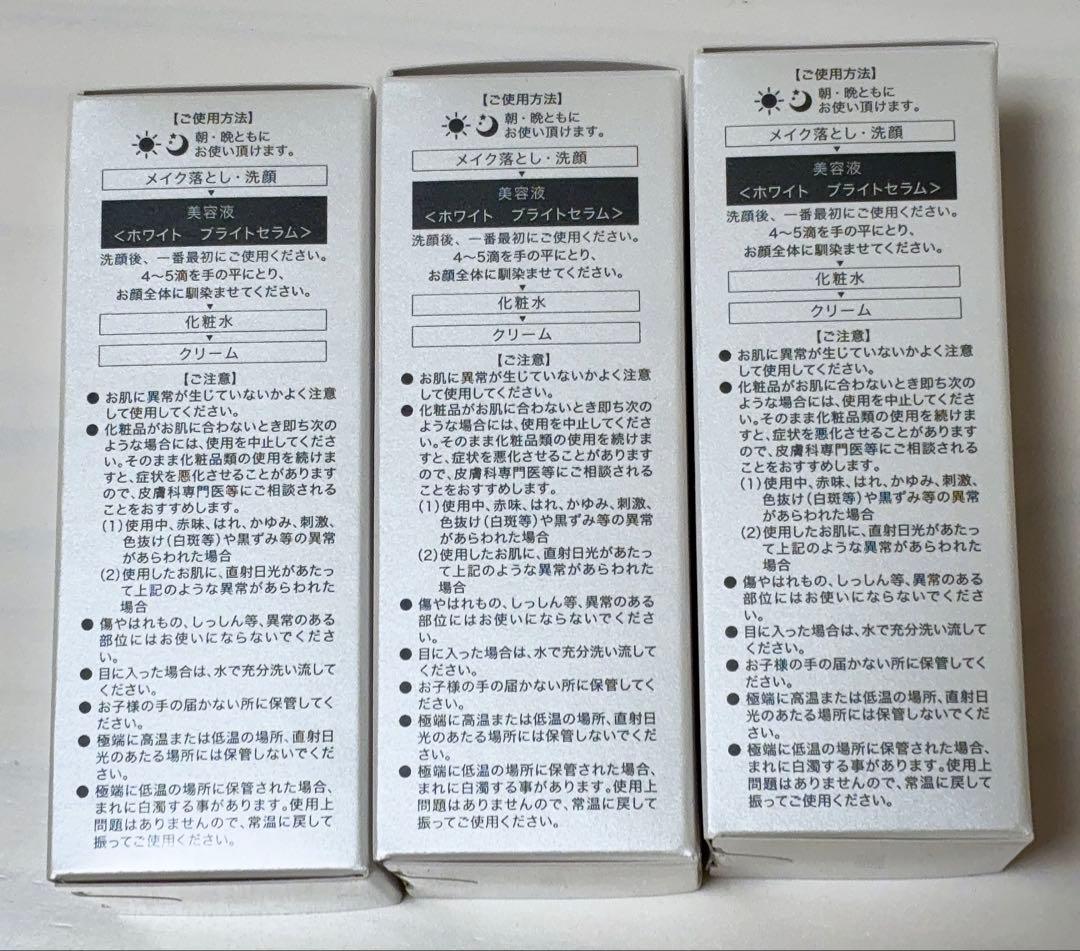 【ご使用方法】
朝・晩ともに
お使い頂けます。
メイク落とし・洗顔
美容液
＜ホワイト　ブライトセラム＞
洗顔後、一番最初にご使用ください。
4〜5滴を手の平にとり、
お顔全体に馴染ませてください。
化粧水
クリーム
【ご注意】
● お肌に異常が生じていないかよく注意
して使用してください。
● 化粧品がお肌に合わないとき即ち次の
ような場合には、使用を中止してくださ
い。そのまま化粧品類の使用を続けま
すと、症状を悪化させることがあります
ので、皮膚科専門医等にご相談される
ことをおすすめします。
(1)使用中、赤味、はれ、かゆみ、刺激、
色抜け(白斑等)や黒ずみ等の異常
があらわれた場合
(2)使用したお肌に、直射日光があたっ
て上記のような異常があらわれた
場合
● 傷やはれもの、しっしん等、異常のある
部位にはお使いにならないでくださ
い。
● 目に入った場合は、水で充分洗い流して
ください。
● お子様の手の届かない所に保管してく
ださい。
● 極端に高温または低温の場所、直射日
光のあたる場所には保管しないでくだ
さい。
● 極端に低温の場所に保管された場合、
まれに白濁する事があります。使用上
問題はありませんので、常温に戻して
振ってご使用ください。
【ご使用方法】
朝・晩ともに
お使い頂けます。
メイク落とし・洗顔
美容液
＜ホワイト　ブライトセラム＞
洗顔後、一番最初にご使用ください。
4〜5滴を手の平にとり、
お顔全体に馴染ませてください。
化粧水
クリーム
【ご注意】
● お肌に異常が生じていないかよく注意
して使用してください。
● 化粧品がお肌に合わないとき即ち次の
ような場合には、使用を中止してくださ
い。そのまま化粧品類の使用を続けま
すと、症状を悪化させることがあります
ので、皮膚科専門医等にご相談される
ことをおすすめします。
(1)使用中、赤味、はれ、かゆみ、刺激、
色抜け(白斑等)や黒ずみ等の異常
があらわれた場合
(2)使用したお肌に、直射日光があたっ
て上記のような異常があらわれた
場合
● 傷やはれもの、しっしん等、異常のある
部位にはお使いにならないでくださ
い。
● 目に入った場合は、水で充分洗い流して
ください。
● お子様の手の届かない所に保管してく
ださい。
● 極端に高温または低温の場所、直射日
光のあたる場所には保管しないでくだ
さい。
● 極端に低温の場所に保管された場合、
まれに白濁する事があります。使用上
問題はありませんので、常温に戻して
振ってご使用ください。
【ご使用方法】
朝・晩ともに
お使い頂けます。
メイク落とし・洗顔
美容液
＜ホワイト　ブライトセラム＞
洗顔後、一番最初にご使用ください。
4〜5滴を手の平にとり、
お顔全体に馴染ませてください。
化粧水
クリーム
【ご注意】
● お肌に異常が生じていないかよく注意
して使用してください。
● 化粧品がお肌に合わないとき即ち次の
ような場合には、使用を中止してくださ
い。そのまま化粧品類の使用を続けま
すと、症状を悪化させることがあります
ので、皮膚科専門医等にご相談される
ことをおすすめします。
(1)使用中、赤味、はれ、かゆみ、刺激、
色抜け(白斑等)や黒ずみ等の異常
があらわれた場合
(2)使用したお肌に、直射日光があたっ
て上記のような異常があらわれた
場合
● 傷やはれもの、しっしん等、異常のある
部位にはお使いにならないでくださ
い。
● 目に入った場合は、水で充分洗い流して
ください。
● お子様の手の届かない所に保管してく
ださい。
● 極端に高温または低温の場所、直射日
光のあたる場所には保管しないでくだ
さい。
● 極端に低温の場所に保管された場合、
まれに白濁する事があります。使用上
問題はありませんので、常温に戻して
振ってご使用ください。